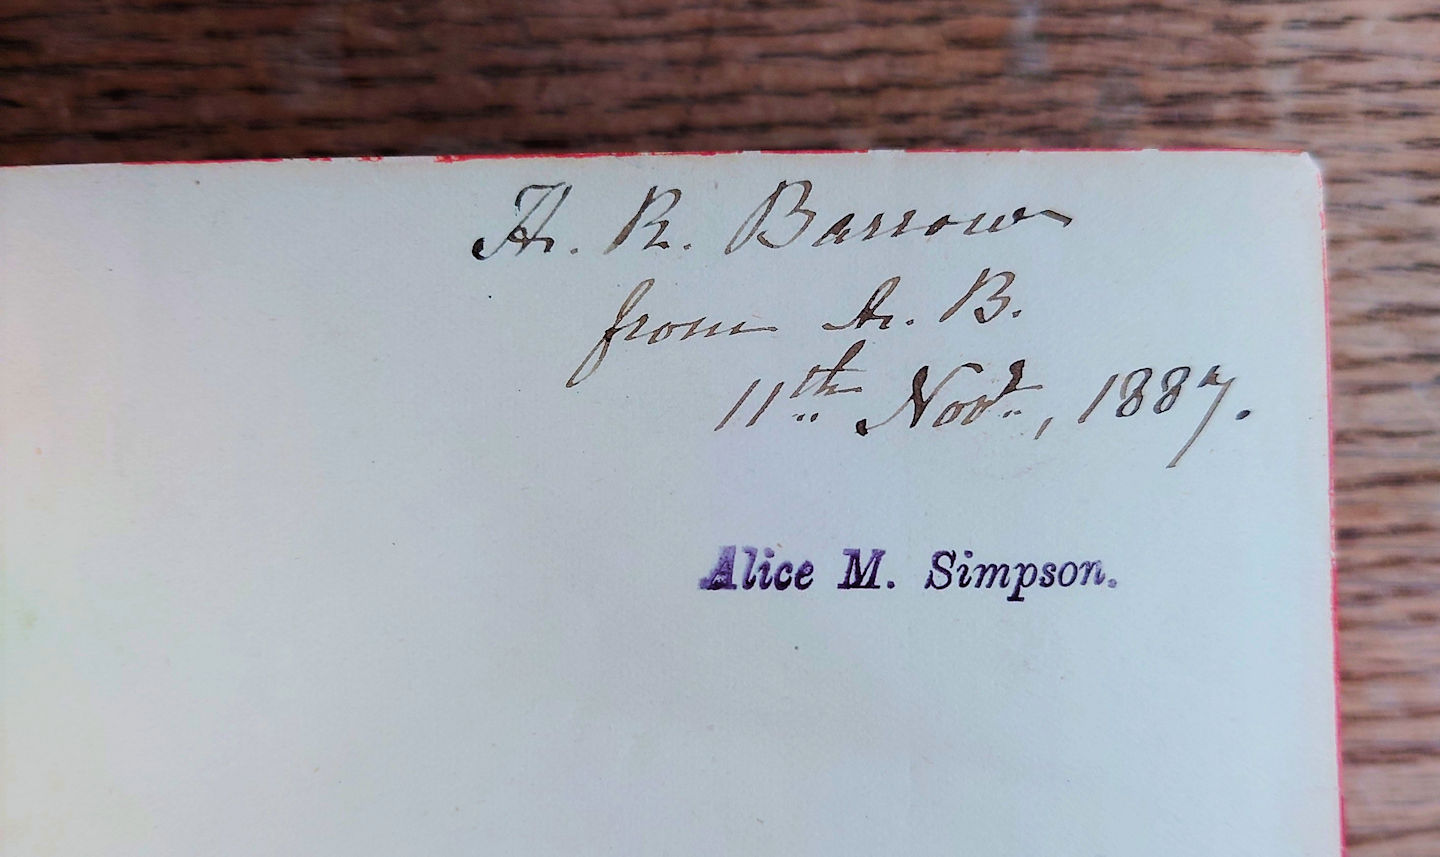 H. R. Barrow
from A. B.
11th Novr, 1887.
Alice M. Simpson.